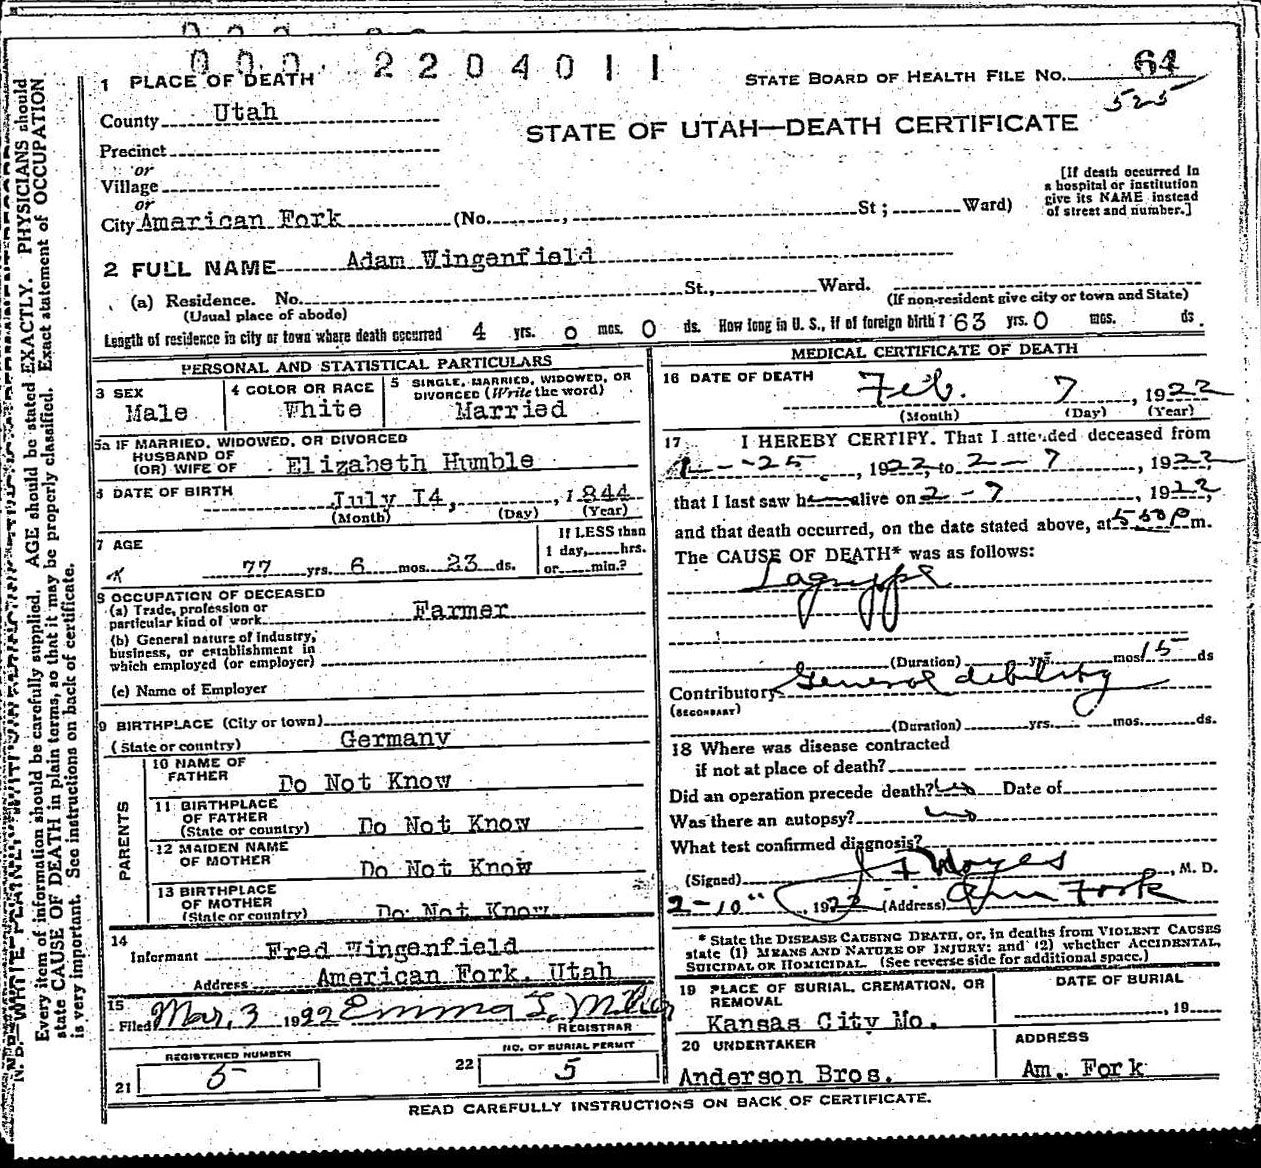 000. 2204011
1 PLACE OF DEATH
STATE BOARD OF HEALTH FILE No. 64
525
County Utah
STATE OF UTAH—DEATH CERTIFICATE
Precinct
or
Village
or
City American Fork (No. , St; Ward)
[If death occurred in
a hospital or institution
give its NAME instead
of street and number.]
2 FULL NAME Adam Wingenfield
(a) Residence. No. St., Ward.
(Usual place of abode)
(If non-resident give city or town and State)
Length of residence in city or town where death occurred 4 yrs. 0 mos. 0 ds. How long in U. S., if of foreign birth? 63 yrs. 0 mos. ds.
PERSONAL AND STATISTICAL PARTICULARS
3 SEX
Male
4 COLOR OR RACE
White
5 SINGLE, MARRIED, WIDOWED, OR
DIVORCED (Write the word)
Married
5a IF MARRIED, WIDOWED, OR DIVORCED
HUSBAND OF
(OR) WIFE OF Elizabeth Humble
6 DATE OF BIRTH
July I4, , 1844
(Month) (Day) (Year)
7 AGE
77 yrs. 6 mos. 23 ds.
If LESS than
1 day, hrs.
or min.?
8 OCCUPATION OF DECEASED
(a) Trade, profession or
particular kind of work Farmer
(b) General nature of industry,
business, or establishment in
which employed (or employer)
(c) Name of Employer
9 BIRTHPLACE (City or town)
(State or country) Germany
PARENTS
10 NAME OF
FATHER Do Not Know
11 BIRTHPLACE
OF FATHER
(State or country) Do Not Know
12 MAIDEN NAME
OF MOTHER Do Not Know
13 BIRTHPLACE
OF MOTHER
(State or country) Do Not Know
14
Informant Fred Wingenfield
Address American Fork, Utah
15
Filed Mar, 3 1922 Emma L.
REGISTRAR
REGISTERED NUMBER
21 5
NO. OF BURIAL PERMIT
22 5
MEDICAL CERTIFICATE OF DEATH
16 DATE OF DEATH
Feb. 7, 1922
(Month) (Day) (Year)
17 I HEREBY CERTIFY, That I attended deceased from
1--25, 1922, to 2-7, 1922,
that I last saw h alive on 2-7, 1922,
and that death occurred, on the date stated above, at 5 30 P m.
The CAUSE OF DEATH* was as follows:
Lagrippe
(Duration) yrs. mos. 15 ds
Contributory General debility
(SECONDARY)
(Duration) yrs. mos. ds.
18 Where was disease contracted
if not at place of death?
Did an operation precede death? No Date of
Was there an autopsy? no
What test confirmed diagnosis?
(Signed) J F Noyes, M. D.
2-10", 1922 (Address) Am Fork
* State the DISEASE CAUSING DEATH, or, in deaths from VIOLENT CAUSES
state (1) MEANS AND NATURE OF INJURY: and (2) whether ACCIDENTAL,
SUICIDAL OR HOMICIDAL. (See reverse side for additional space.)
19 PLACE OF BURIAL, CREMATION, OR
REMOVAL
Kansas City Mo.
DATE OF BURIAL
, 19
20 UNDERTAKER
Anderson Bros.
ADDRESS
Am. Fork
READ CAREFULLY INSTRUCTIONS ON BACK OF CERTIFICATE.
Every item of information should be carefully supplied. AGE should be stated EXACTLY. PHYSICIANS should
state CAUSE OF DEATH in plain terms, so that it may be properly classified. Exact statement of OCCUPATION
is very important. See instructions on back of certificate.